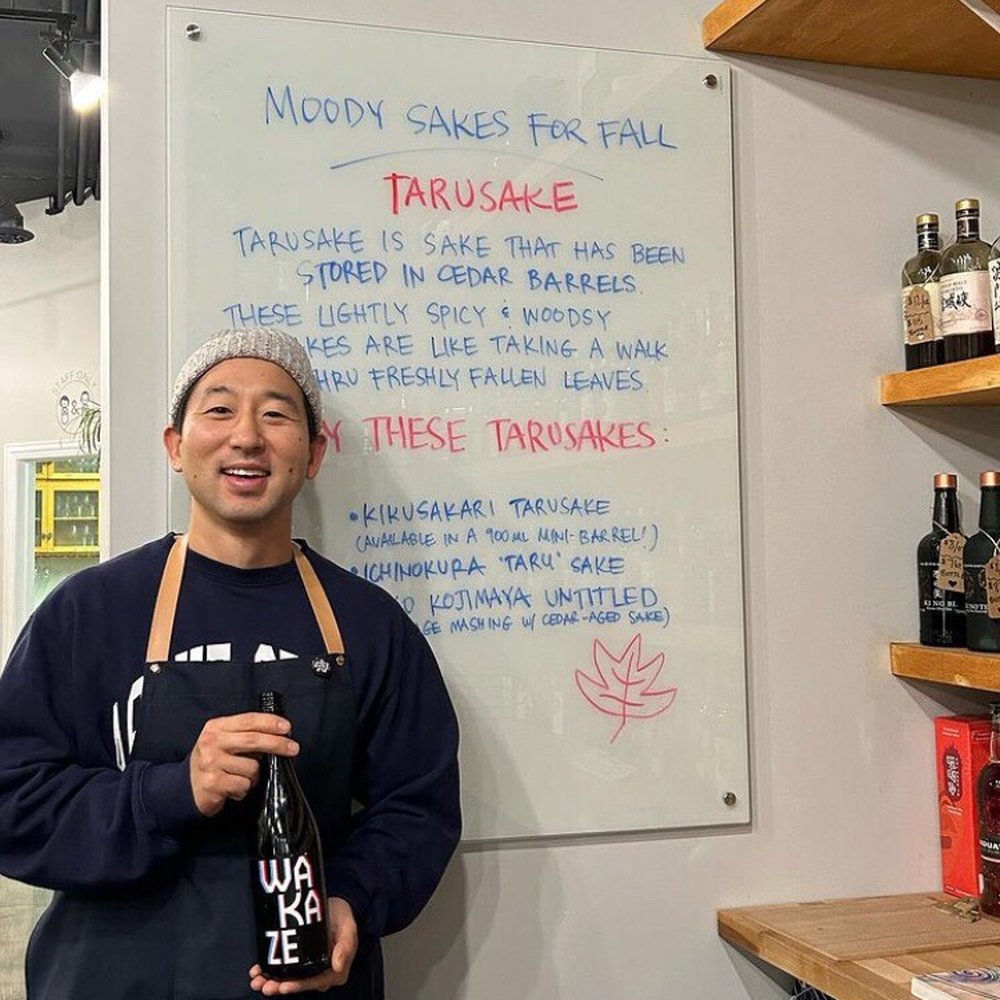 MOODY SAKES FOR FALL
TARUSAKE
TARUSAKE IS SAKE THAT HAS BEEN
STORED IN CEDAR BARRELS.
THESE LIGHTLY SPICY & WOODSY
AKES ARE LIKE TAKING A WALK
HRU FRESHLY FALLEN LEAVES.
Y THESE TARUSAKES:
• KIKUSAKARI TARUSAKE
(AVAILABLE IN A 900ML MINI-BARREL!)
• ICHINOKURA "TARU" SAKE
KOJIMAYA UNTITLED
GE MASHING W/ CEDAR-AGED SAKE)
STAFF ONLY
WA
KA
ZE